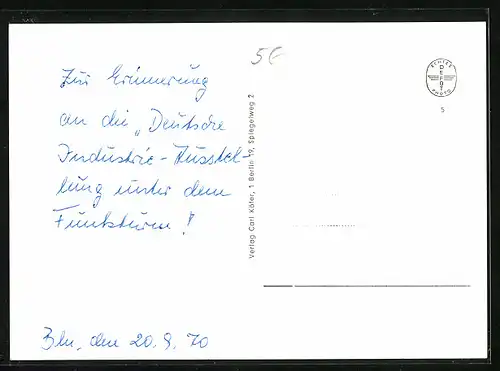 Zur Erinnerung
an die "Deutsche
Industrie-Ausstel-
lung unter dem
Funkturm!
Bln, den 20.9.70
5€
Verlag Carl Köfer, 1 Berlin 19, Spiegelweg 2
ECHTES
DEFOT
PHOTO
5